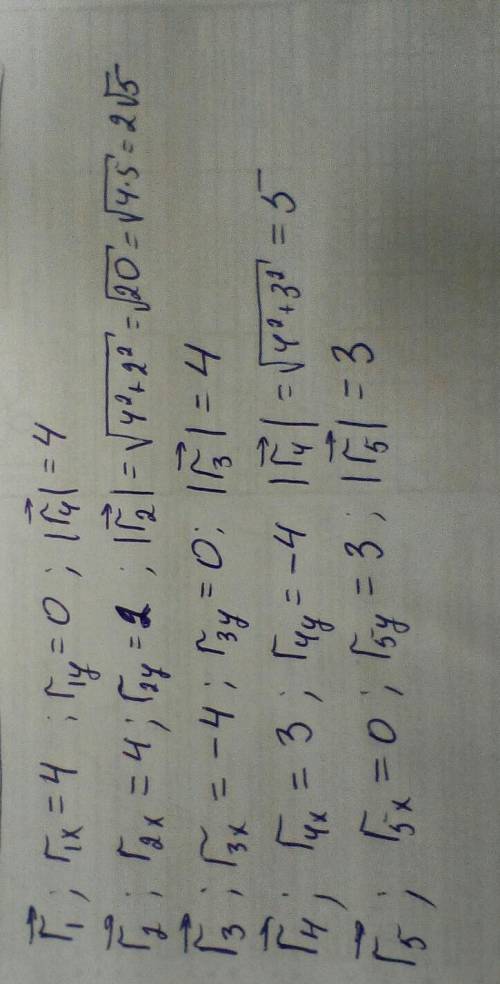 r⃗₁ ; r₁ₓ = 4 ; r₁ᵧ = 0 ; |r⃗₄| = 4
r⃗₂ ; r₂ₓ = 4 ; r₂ᵧ = 2 ; |r⃗₂| = √(4² + 2²) = √20 = √(4·5) = 2√5
r⃗₃ ; r₃ₓ = -4 ; r₃ᵧ = 0 ; |r⃗₃| = 4
r⃗₄ ; r₄ₓ = 3 ; r₄ᵧ = -4 |r⃗₄| = √(4² + 3²) = 5
r⃗₅ ; r₅ₓ = 0 ; r₅ᵧ = 3 ; |r⃗₅| = 3